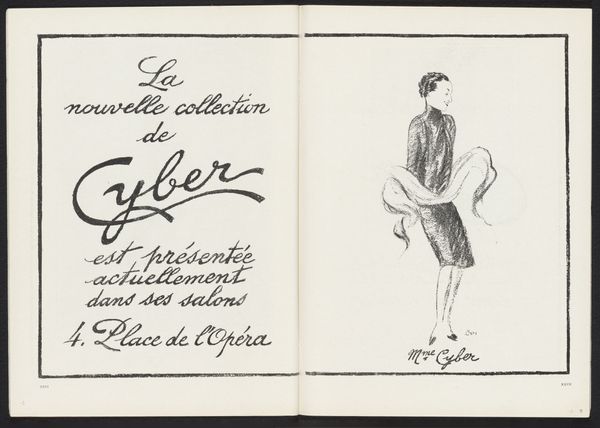 La
nouvelle collection
de
Cyber
est présentée
actuellement
dans ses salons
4. Place de l'Opéra
Mme Cyber